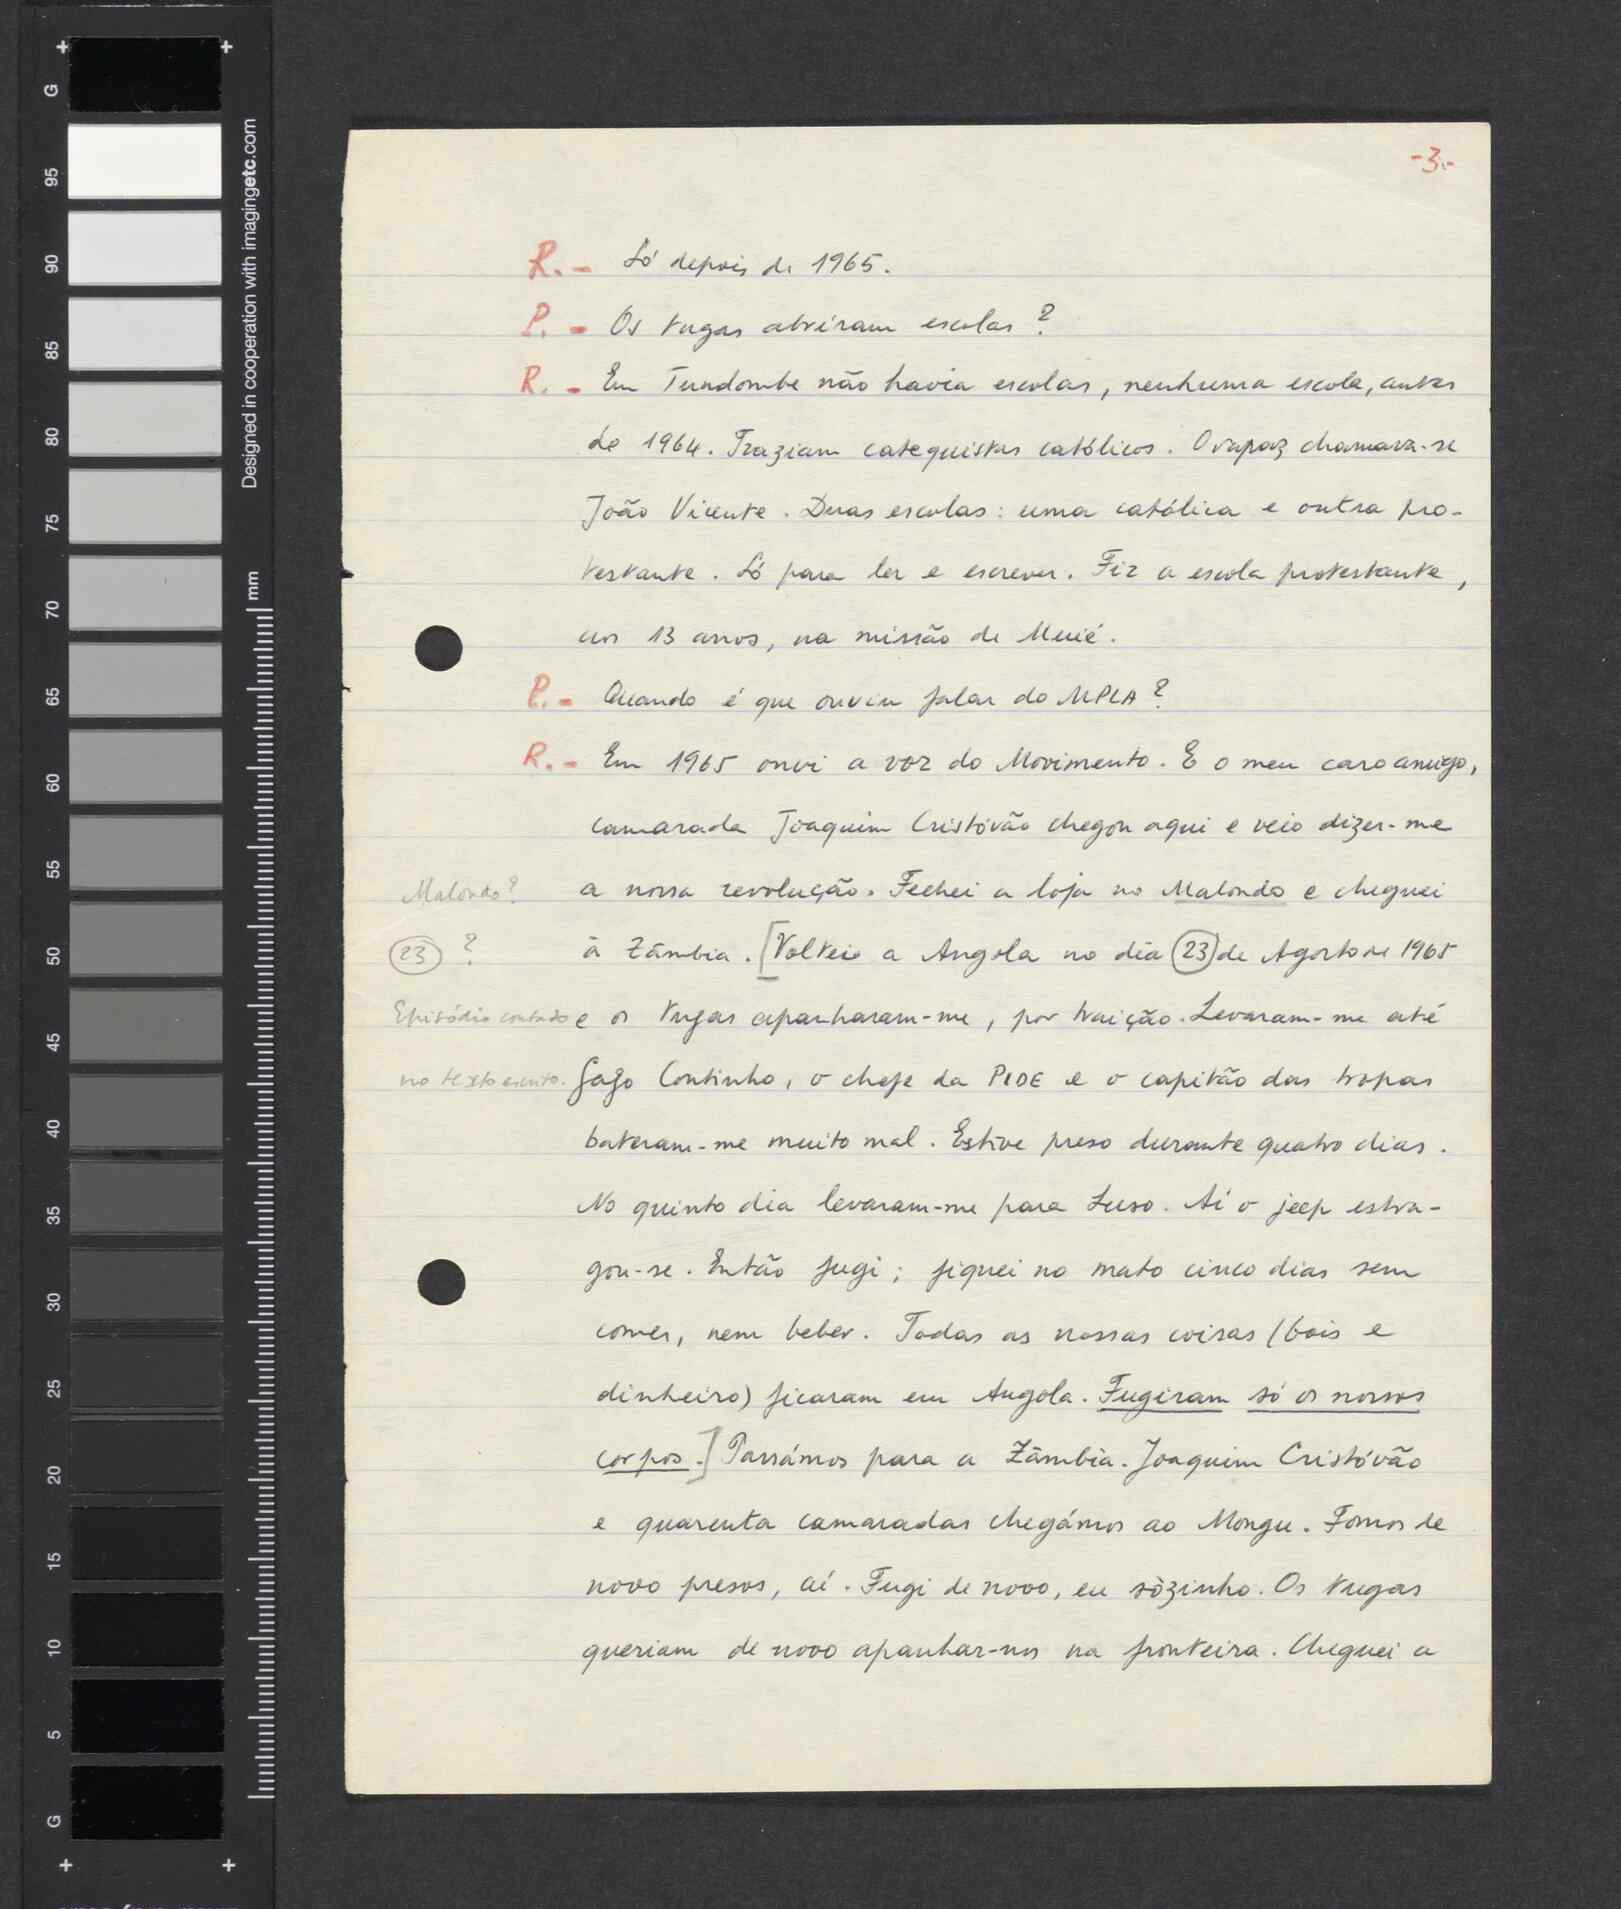 -3.-
R. - Só depois de 1965.
P. - Os tugas abriram escolas?
R. - Em Tundombe não havia escolas, nenhuma escola, antes
de 1964. Traziam catequistas católicos. O rapaz chamava-se
João Vicente. Duas escolas: uma católica e outra pro-
testante. Só para ler e escrever. Fiz a escola protestante,
aos 13 anos, na missão de Muié.
P. - Quando é que ouviu falar do MPLA?
R. - Em 1965 ouvi a voz do Movimento. E o meu caro amigo,
camarada Joaquim Cristóvão chegou aqui e veio dizer-me
Malondo? a nossa revolução. Fechei a loja no Malondo e cheguei
23 ? à Zâmbia. [Voltei a Angola no dia 23 de Agosto de 1965
Episódio contado e os tugas apanharam-me, por traição. Levaram-me até
no texto escrito. Gago Coutinho, o chefe da PIDE e o capitão das tropas
bateram-me muito mal. Estive preso durante quatro dias.
No quinto dia levaram-me para Luso. Aí o jeep estra-
gou-se. Então fugi; fiquei no mato cinco dias sem
comer, nem beber. Todas as nossas coisas (bois e
dinheiro) ficaram em Angola. Fugiram só os nossos
corpos.] Passámos para a Zâmbia. Joaquim Cristóvão
e quarenta camaradas chegámos ao Mongu. Fomos de
novo presos, aí. Fugi de novo, eu sòzinho. Os tugas
queriam de novo apanhar-nos na fronteira. Cheguei a
G
95
90
85
80
75
70
65
60
55
50
45
40
35
30
25
20
15
10
5
G
Designed in cooperation with imagingetc.com
mm